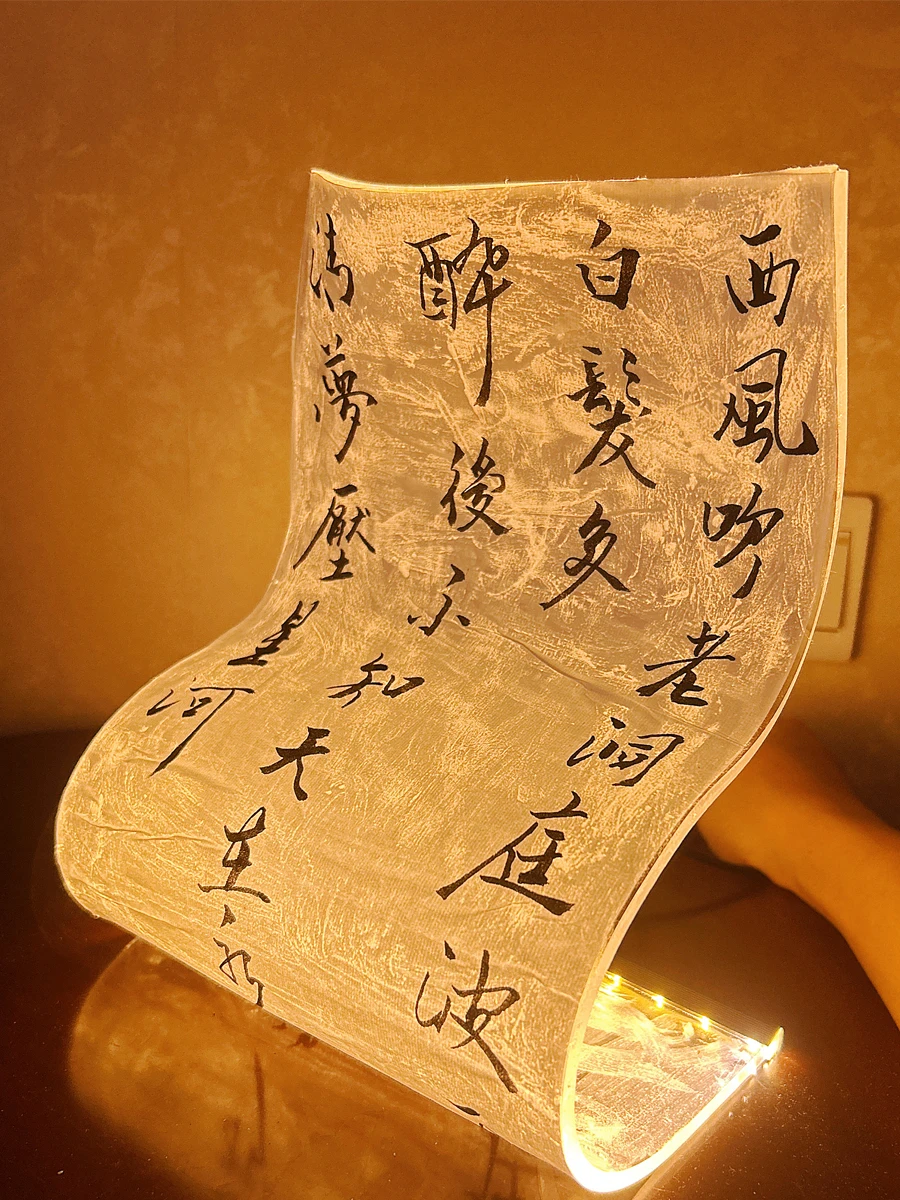 西風吹老洞庭波
白髮多
醉後不知天在水
清夢壓星河